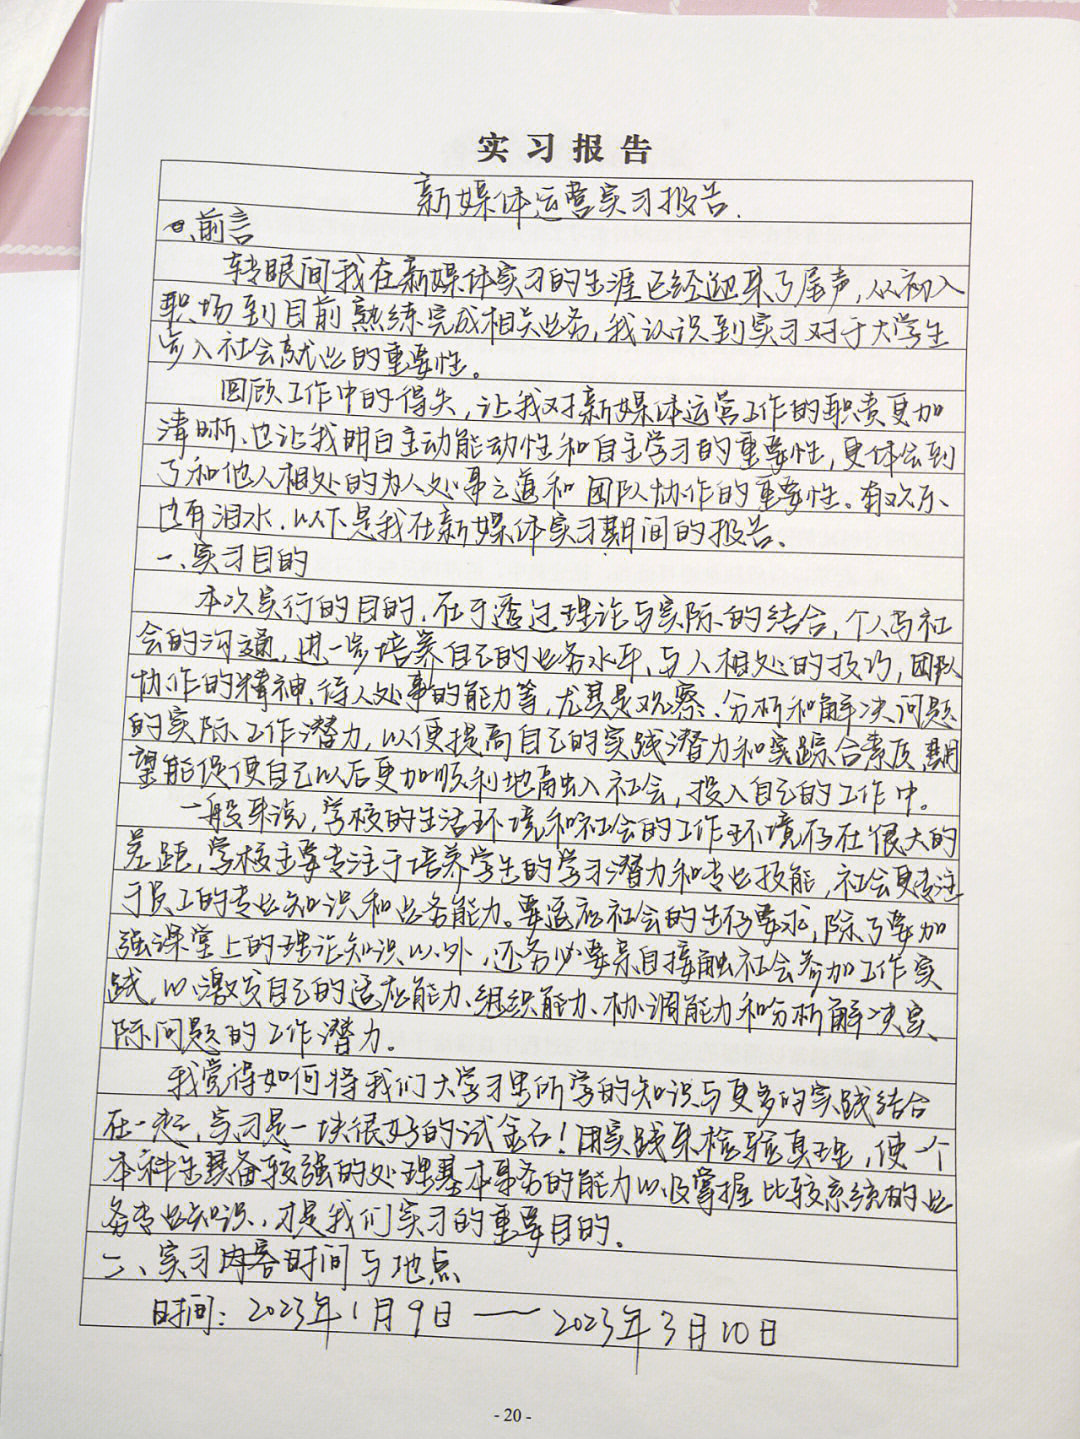 实习报告
新媒体运营实习报告.
前言
转眼间我在新媒体实习的生涯已经迎来了尾声,从初入
职场到目前熟练完成相关业务,我认识到实习对于大学生
步入社会就业的重要性。
回顾工作中的得失,让我对新媒体运营工作的职责更加
清晰、也让我明白主动能动性和自主学习的重要性,更体会到
了和他人相处的为人处事之道和团队协作的重要性。有欢乐、
也有泪水.以下是我在新媒体实习期间的报告。
一、实习目的
本次实行的目的.在于透过理论与实际的结合,个人与社
会的沟通,进一步培养自己的业务水平、与人相处的技巧,团队
协作的精神、待人处事的能力等,尤其是观察、分析和解决问题
的实际工作潜力,以便提高自己的实践潜力和实践综合素质,期
望能促使自己以后更加顺利地融入社会,投入自己的工作中。
一般来说,学校的生活环境和社会的工作环境存在很大的
差距,学校主要专注于培养学生的学习潜力和专业技能,社会更专注
于员工的专业知识和业务能力。要适应社会的生存要求,除了要加
强课堂上的理论知识以外,还务必要亲自接触社会参加工作实
践,以激发自己的适应能力、组织能力、协调能力和分析解决实
际问题的工作潜力。
我觉得如何将我们大学习里所学的知识与更多的实践结合
在一起,实习是一块很好的试金石!用实践来检验真理,使一个
本科生具备较强的处理基本事务的能力以及掌握比较系统的业
务专业知识,才是我们实习的重要目的。
二、实习内容时间与地点
时间:2023年1月9日——2023年3月10日
- 20 -